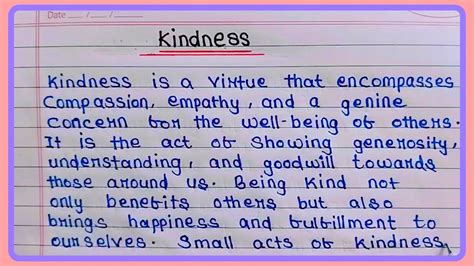 Date __/__/__
Kindness
Kindness is a virtue that encompasses
Compassion, empathy, and a genine
concern for the well-being of others.
It is the act of showing generosity,
understanding, and goodwill towards
those around us. Being kind not
only benefits others but also
brings happiness and fulfillment to
ourselves. Small acts of kindness,